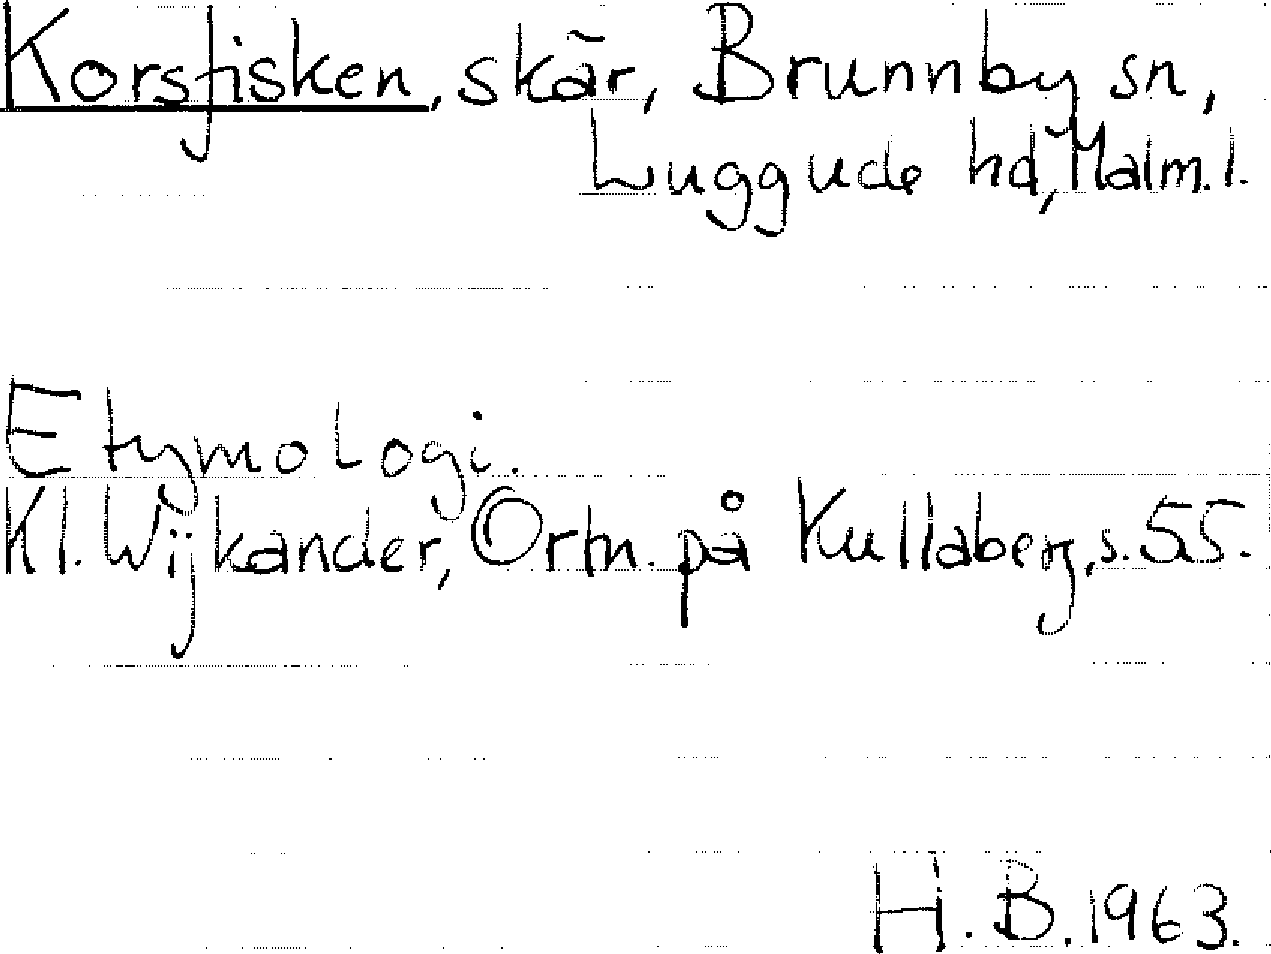 Korsfisken, skär, Brunnby sn,
Luggude hd, Malm. l.
Etymologi.
Kl. Wijkander, Ortn. på Kullaberg, s. 55.
H. B. 1963.